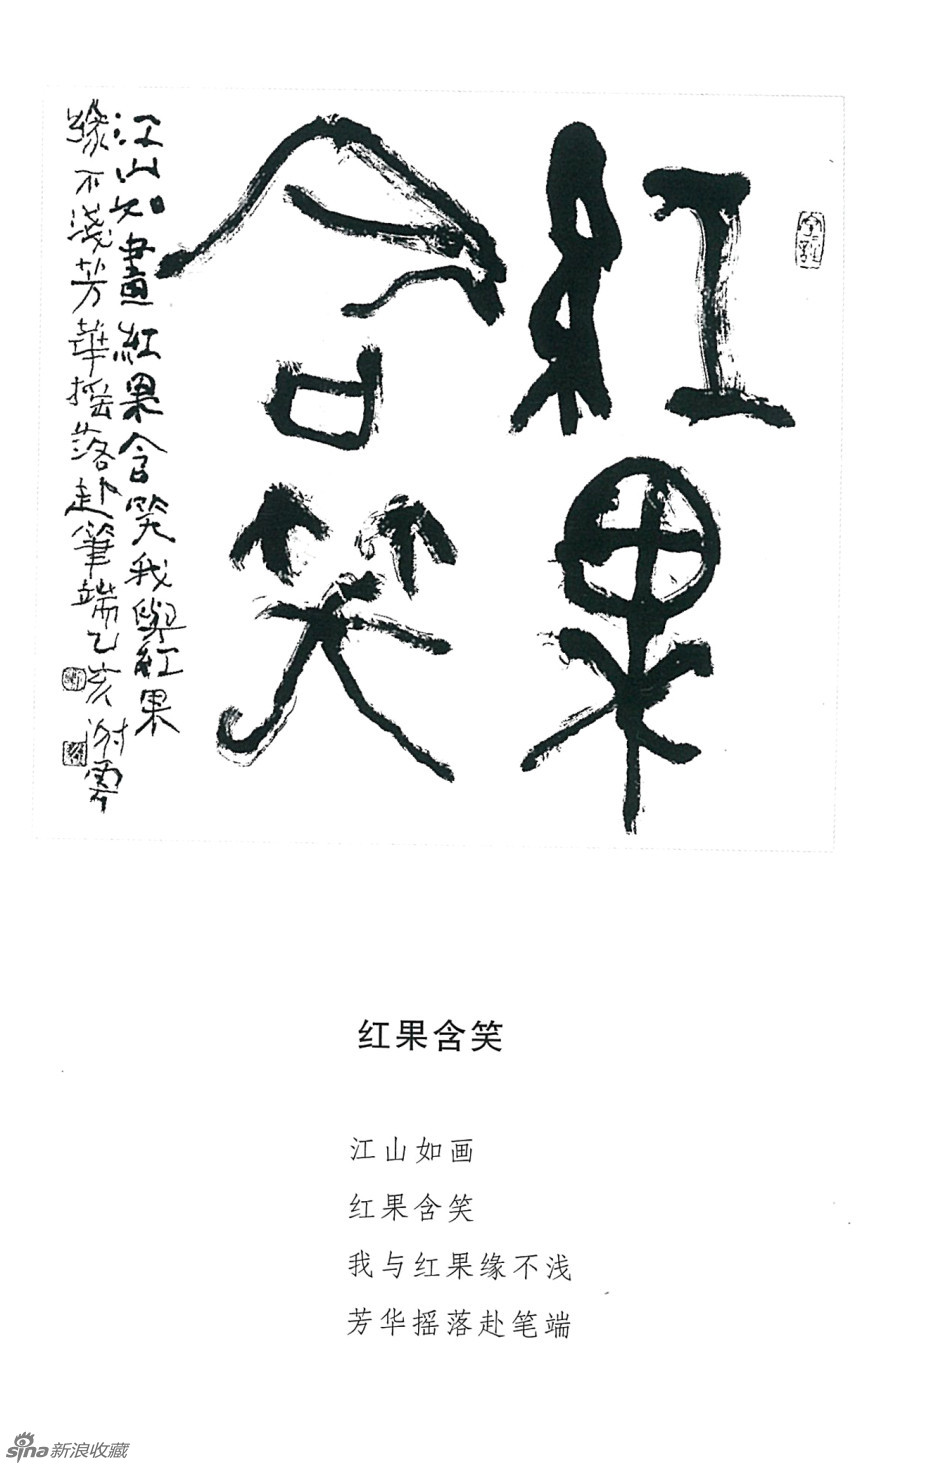 紅果
含笑
江山如畫紅果含笑我與紅果
緣不淺芳華摇落赴筆端乙亥謝雲
红果含笑
江山如画
红果含笑
我与红果缘不浅
芳华摇落赴笔端
sina新浪收藏